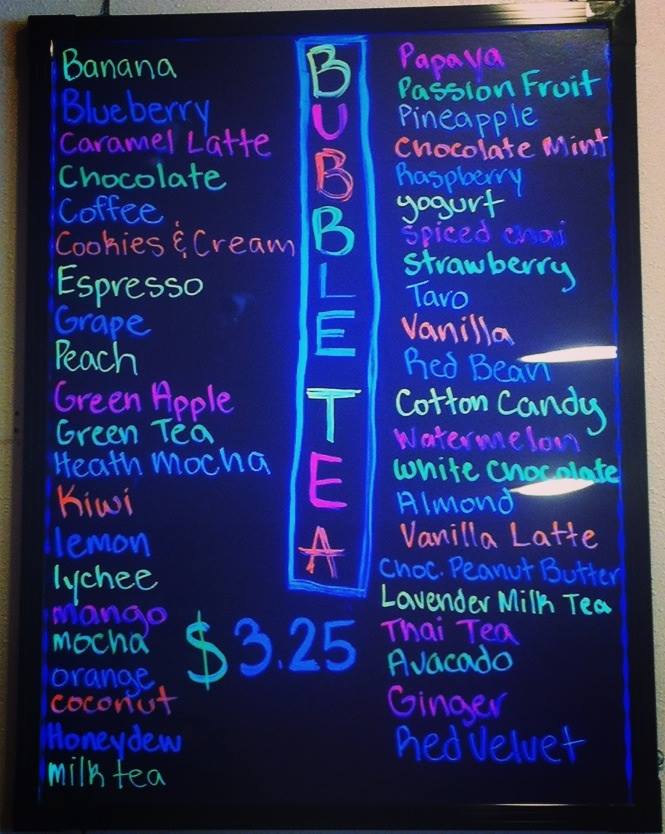 Banana
Blueberry
Caramel Latte
Chocolate
Coffee
Cookies & Cream
Espresso
Grape
Peach
Green Apple
Green Tea
Heath Mocha
Kiwi
lemon
lychee
mango
mocha
orange
coconut
Honeydew
milk tea
BUBBLE TEA
$3.25
Papaya
Passion Fruit
Pineapple
Chocolate Mint
Raspberry
yogurt
spiced chai
Strawberry
Taro
Vanilla
Red Bean
Cotton Candy
Watermelon
White Chocolate
Almond
Vanilla Latte
Choc. Peanut Butter
Lavender Milk Tea
Thai Tea
Avacado
Ginger
Red Velvet